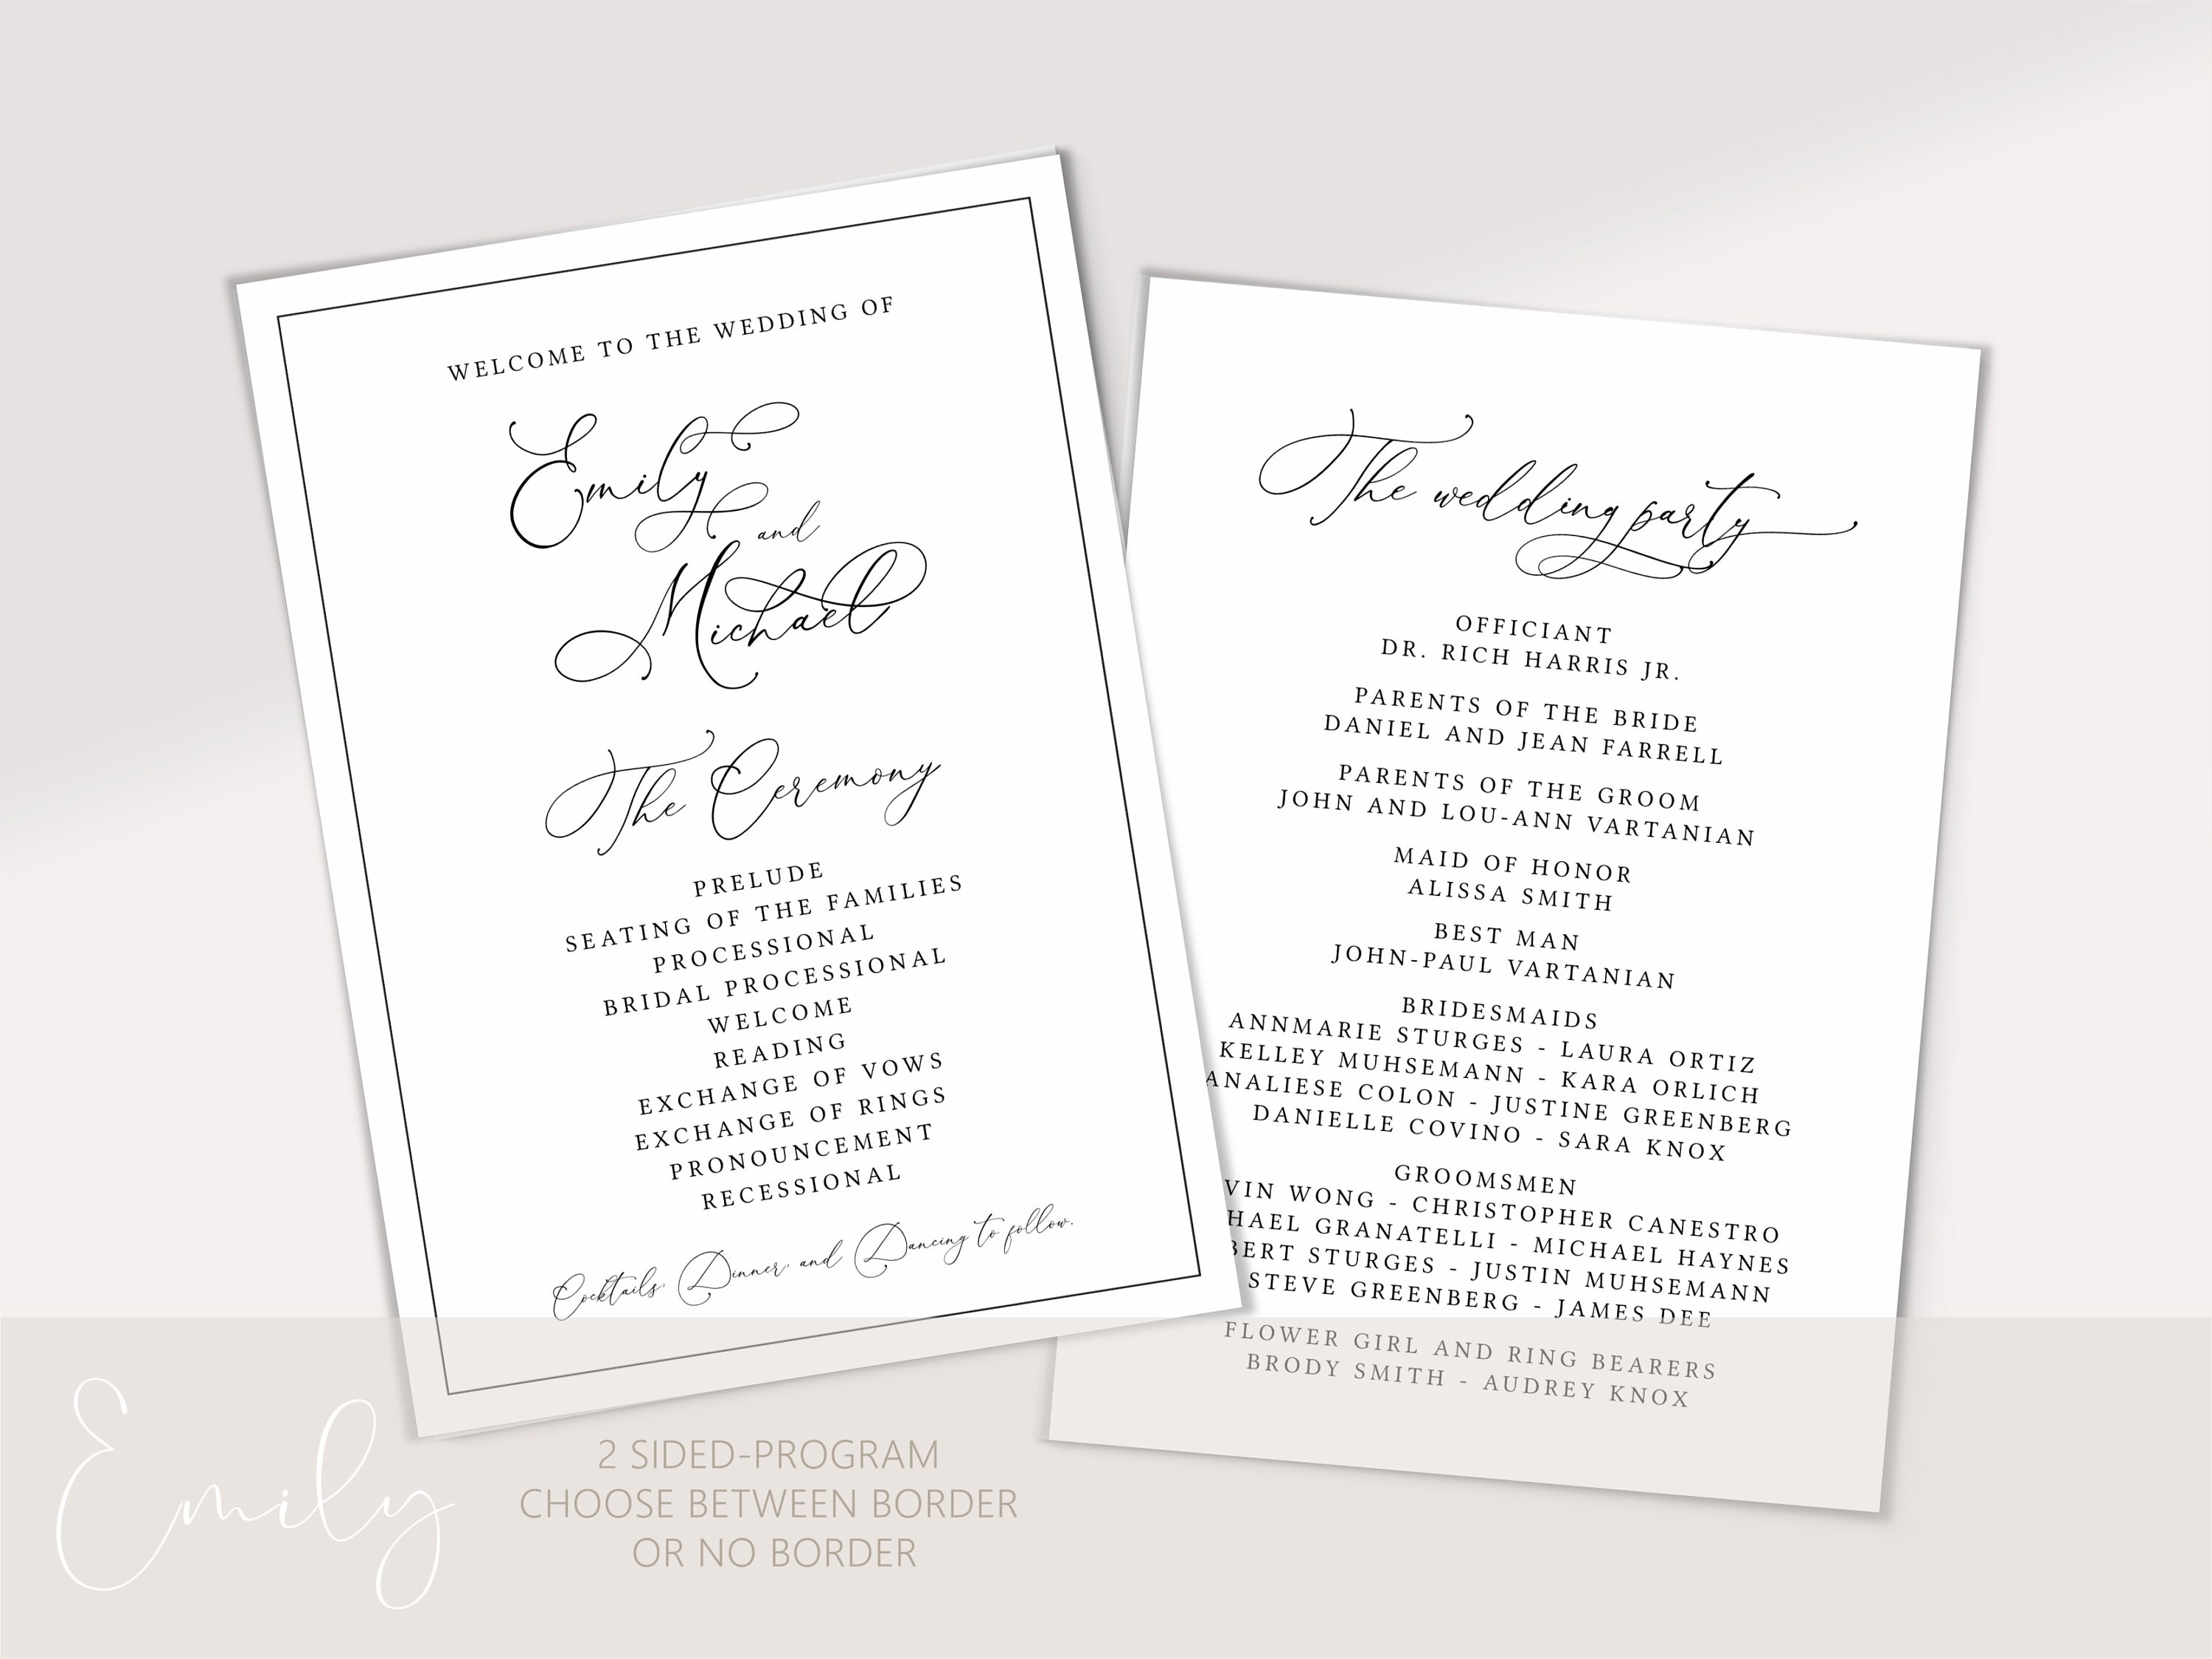 WELCOME TO THE WEDDING OF
Emily
and
Michael
The Ceremony
PRELUDE
SEATING OF THE FAMILIES
PROCESSIONAL
BRIDAL PROCESSIONAL
WELCOME
READING
EXCHANGE OF VOWS
EXCHANGE OF RINGS
PRONOUNCEMENT
RECESSIONAL
Cocktails, Dinner, and Dancing to follow.
The wedding party
OFFICIANT
DR. RICH HARRIS JR.
PARENTS OF THE BRIDE
DANIEL AND JEAN FARRELL
PARENTS OF THE GROOM
JOHN AND LOU-ANN VARTANIAN
MAID OF HONOR
ALISSA SMITH
BEST MAN
JOHN-PAUL VARTANIAN
BRIDESMAIDS
ANNMARIE STURGES - LAURA ORTIZ
KELLEY MUHSEMANN - KARA ORLICH
ANALIESE COLON - JUSTINE GREENBERG
DANIELLE COVINO - SARA KNOX
GROOMSMEN
VIN WONG - CHRISTOPHER CANESTRO
HAEL GRANATELLI - MICHAEL HAYNES
BERT STURGES - JUSTIN MUHSEMANN
STEVE GREENBERG - JAMES DEE
FLOWER GIRL AND RING BEARERS
BRODY SMITH - AUDREY KNOX
Emily
2 SIDED-PROGRAM
CHOOSE BETWEEN BORDER
OR NO BORDER